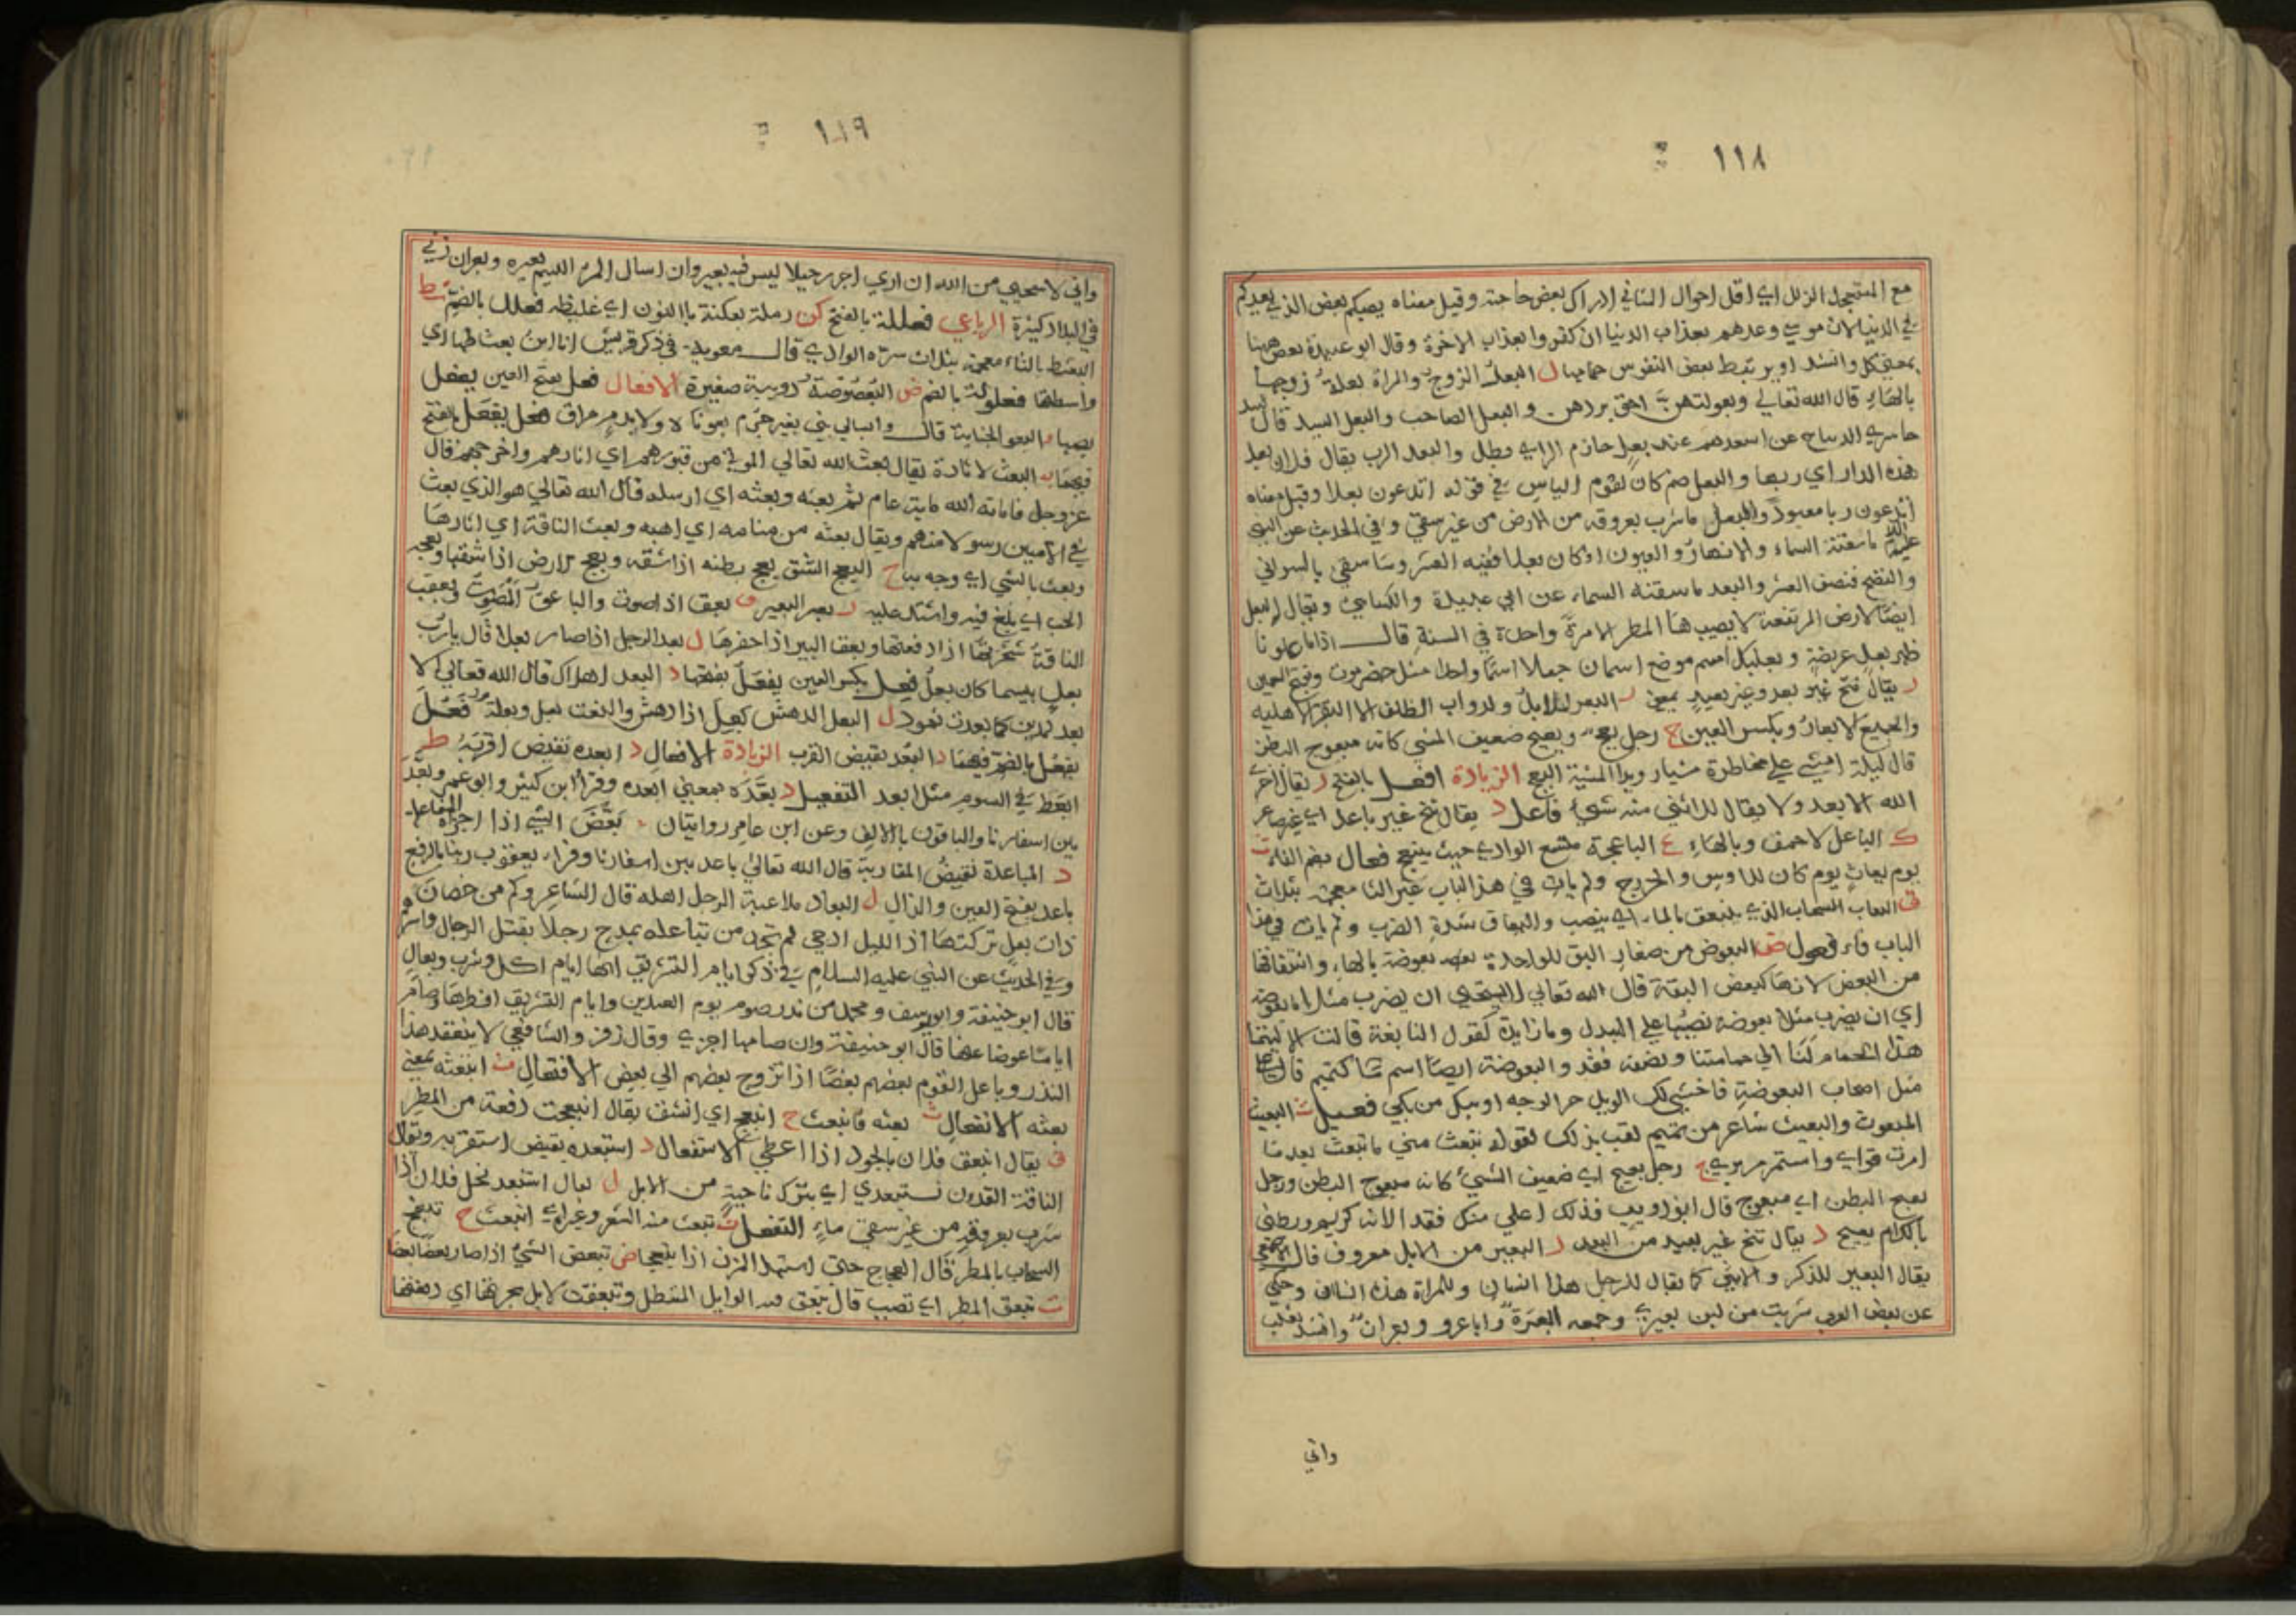 ١١٨
مع المستعجل الزلل اي اقل احوال التاني ادراك بعض حاجته وقيل معناه يصبكم بعض الذي يعدكم
في الدنيا لان موسى وعدهم بعذاب الدنيا ان كفروا بعذاب الاخرة وقال ابو عبيدة بعض ههنا
بمعنى كل وانشد او يرتبط بعض النفوس حمامها ل البعل الزوج والمراة بعلة زوجها
بالهاء قال الله تعالي وبعولتهن احق بردهن والبعل الصاحب والبعل السيد قال لبيد
حاسري الديباج عن اسعدهم عند بعل حازم الراي وطل والبعل الرب يقال فلان بعل
هذه الدار اي ربها والبعل صنم كان لقوم الياس في قوله اتدعون بعلا وقيل معناه
اتدعون ربا معبودا والبعل ما شرب بعروقه من الارض من غير سقي وفي الحديث عن النبي
عليه ما سقته السماء والانهار والعيون او كان بعلا ففيه العشر وما سقي بالسواني
والنضح فنصف العشر والبعل ما سقته السماء عن ابي عبيدة والكسايي ويقال البعل
ايضا الارض المرتفعة لا يصيبها المطر الا مرة واحدة في السنة قال اذا ما علونا
ظهر بعل عريضة وبعلبك اسم موضع اسمان جعلا اسما واحدا مثل حضرموت وفتح العين
د يقال تنح غير بعد وغير بعيد بمعنى ر البعر للابل ولدواب الظلف الا البقر الاهليه
والجميع الابعار وبكسر العين ج رجل بعج وبعيج ضعيف المشي كانه مبعوج البطن
قال ليلة امشي علي مخاطرة مشيا رويدا كمشية البعج الزيادة افعل بالفتح د يقال اخر
الله الابعد ولا يقال للانثي منه شيء فاعل د يقال تنح غير باعد اي غير صاغر
ك الباعك الاحمق وبالهاء ج الباعجة متسع الوادي حيث ينبعج فعال بضم الفاء ث
يوم بعاث يوم كان للاوس والخزرج ولم يات في هذا الباب غير الثا معجمة بثلاث
ق البعاق السحاب الذي ينبعق بالماء اي ينصب والبعاق شدة الضرب ولم يات في هذا
الباب فاء فعول ض البعوض من صغار البق للواحدة بعوضة بالهاء واشتقاقها
من البعض لانها كبعض البقة قال الله تعالي لا يستحيي ان يضرب مثلا ما بعوضة
اي ان يضرب مثلا بعوضة نصبها علي البدل وما زايدة كقول النابغة قالت الا ليتما
هذا الحمام لنا الي حمامتنا ونصفه فقد والبعوضة ايضا اسم ماء لتميم قال
مثل اصحاب البعوضة فاخمشي لك الويل حر الوجه او يبك من بكي فعيل ث البعيث
المبعوث والبعيث شاعر من تميم لقب بذلك لقوله تبعث مني ما تبعث بعدما
امرت قواي واستمر مريري ج رجل بعيج اي ضعيف المشي كانه مبعوج البطن ورجل
بعيج البطن اي مبعوج قال ابو ذويب فذلك اعلي منك فقدا لانه كريم وبطني
بالكرام بعيج د يقال تنح غير بعيد من البعد ر البعير من الابل معروف قال الاصمعي
يقال البعير للذكر والانثي كما يقال للرجل هذا انسان وللمراة هذه انسان وحكي
عن بعض العرب شربت من لبن بعيري وجمعه ابعرة واباعر وبعران وانشد ثعلب
واني
١١٩
واني لاستحيي من الله ان اري اجرر حبلا ليس فيه بعير وان اسال المرء اللئيم بعيره وبعران ربي
في البلاد كثيرة الرباعي فعللة بالفتح كن رملة بعكنة بالنون اي غليظة فعلل بالضم ثط
البعثط بالثاء معجمة بثلاث سرة الوادي قال معوية في ذكر قريش انا ابن بعثطها اي
واسطها فعلولة بالضم ض البعصوصة دويبة صغيرة الافعال فعل بفتح العين يفعل
بضمها و البعو الجناية قال وابسالي بني بغير جرم بعوناه ولا بدم مراق فعل يفعل بالفتح
فيهما ث البعث الاثارة يقال بعث الله تعالي الموتى من قبورهم اي اثارهم واخرجهم قال
عز وجل فاماته الله ماية عام ثم بعثه وبعثه اي ارسله قال الله تعالي هو الذي بعث
في الاميين رسولا منهم ويقال بعثه من منامه اي اهبه وبعث الناقة اي اثارها
وبعث بالشي اي وجه به ج البعج الشق بعج بطنه اذا شقه وبعج الارض اذا شقها وبعجه
الحب اي بلغ فيه واشتد عليه ر بعر البعير ق بعق اذا صوت والباعق المصوت وبعقت
الناقة نحرتها اذا دفعتها وبعق البير اذا حفرها ل بعل الرجل اذا صار بعلا قال يا رب
بعل بيسما كان بعل فعل بكسر العين يفعل بفتحها د البعد الهلاك قال الله تعالي الا
بعدا لمدين كما بعدت ثمود ل البعل الدهش بعل اذا دهش والنعت بعل وبعلة فعل
يفعل بالضم فيهما د البعد نقيض القرب الزيادة الافعال د ابعده نقيض اقربه ط
ابعط في السوم مثل ابعد التفعيل د بعده بمعني ابعده وقرا ابن كثير وابو عمرو بعد
بين اسفارنا والباقون بالالف وعن ابن عامر روايتان ض بعض الشي اذا اجزاه المفاعلة
د المباعدة نقيض المقاربة قال الله تعالي باعد بين اسفارنا وقراء يعقوب ربنا بالرفع
باعد بفتح العين والدال ل البعال ملاعبة الرجل اهله قال الشاعر وكم من حصان
ذات بعل تركتها اذا الليل ادجي لم تجد من تباعله يمدح رجلا بقتل الرجال واسرهم
وفي الحديث عن النبي عليه السلام في ذكر ايام التشريق انها ايام اكل وشرب وبعال
قال ابو حنيفة وابو يوسف ومحمد من نذر صوم يوم العيدين وايام التشريق افطرها وصام
اياما عوضا عنها قال ابو حنيفة وان صامها اجزي وقال زفر والشافعي لا ينعقد هذا
النذر وباعل القوم بعضهم بعضا اذا تزوج بعضهم الي بعض الافتعال ث ابتعثه بمعني
بعثه الانفعال ث بعثه فانبعث ج انبعج اي انشق يقال انبعجت دفعة من المطر
ق يقال انبعق فلان بالجود اذا اعطي الاستفعال د استبعده نقيض استقربه ويقال
الناقة القذور تستبعدي اي بترك ناحية من الابل ل يقال استبعل نخل فلان اذا
شرب بعروقه من غير سقي ماء التفعل ث تبعث منه الشعر وغيره اي انبعث ج تبعج
السحاب بالمطر قال العجاج حتى استهل المزن اذا تبعجا ض تبعض الشي اذا صار بعضا بعضا
ق تبعق المطر اي تصبب قال تبعق فيه الوابل المتهطل وتبعقت الابل